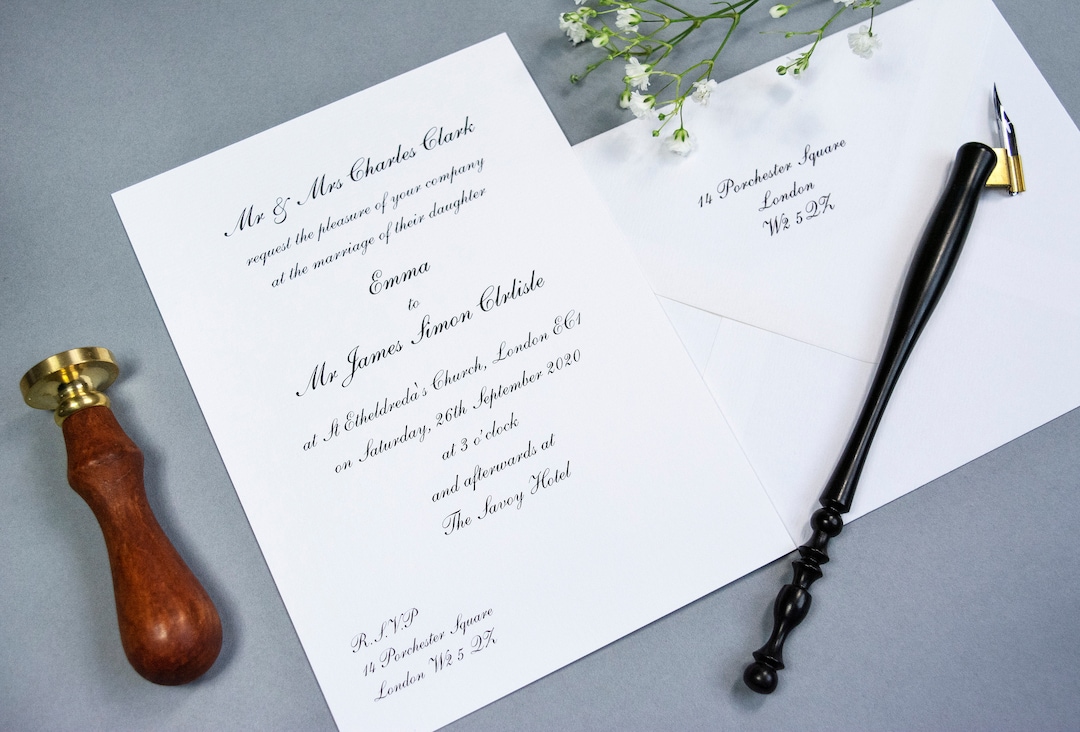 Mr & Mrs Charles Clark
request the pleasure of your company
at the marriage of their daughter
Emma
to
Mr James Simon Clrlisle
at St Etheldredà's Church, London EC1
on Saturday, 26th September 2020
at 3 o'clock
and afterwards at
The Savoy Hotel
R.S.V.P
14 Porchester Square
London W2 5 QZ
14 Porchester Square
London
W2 5 QZ